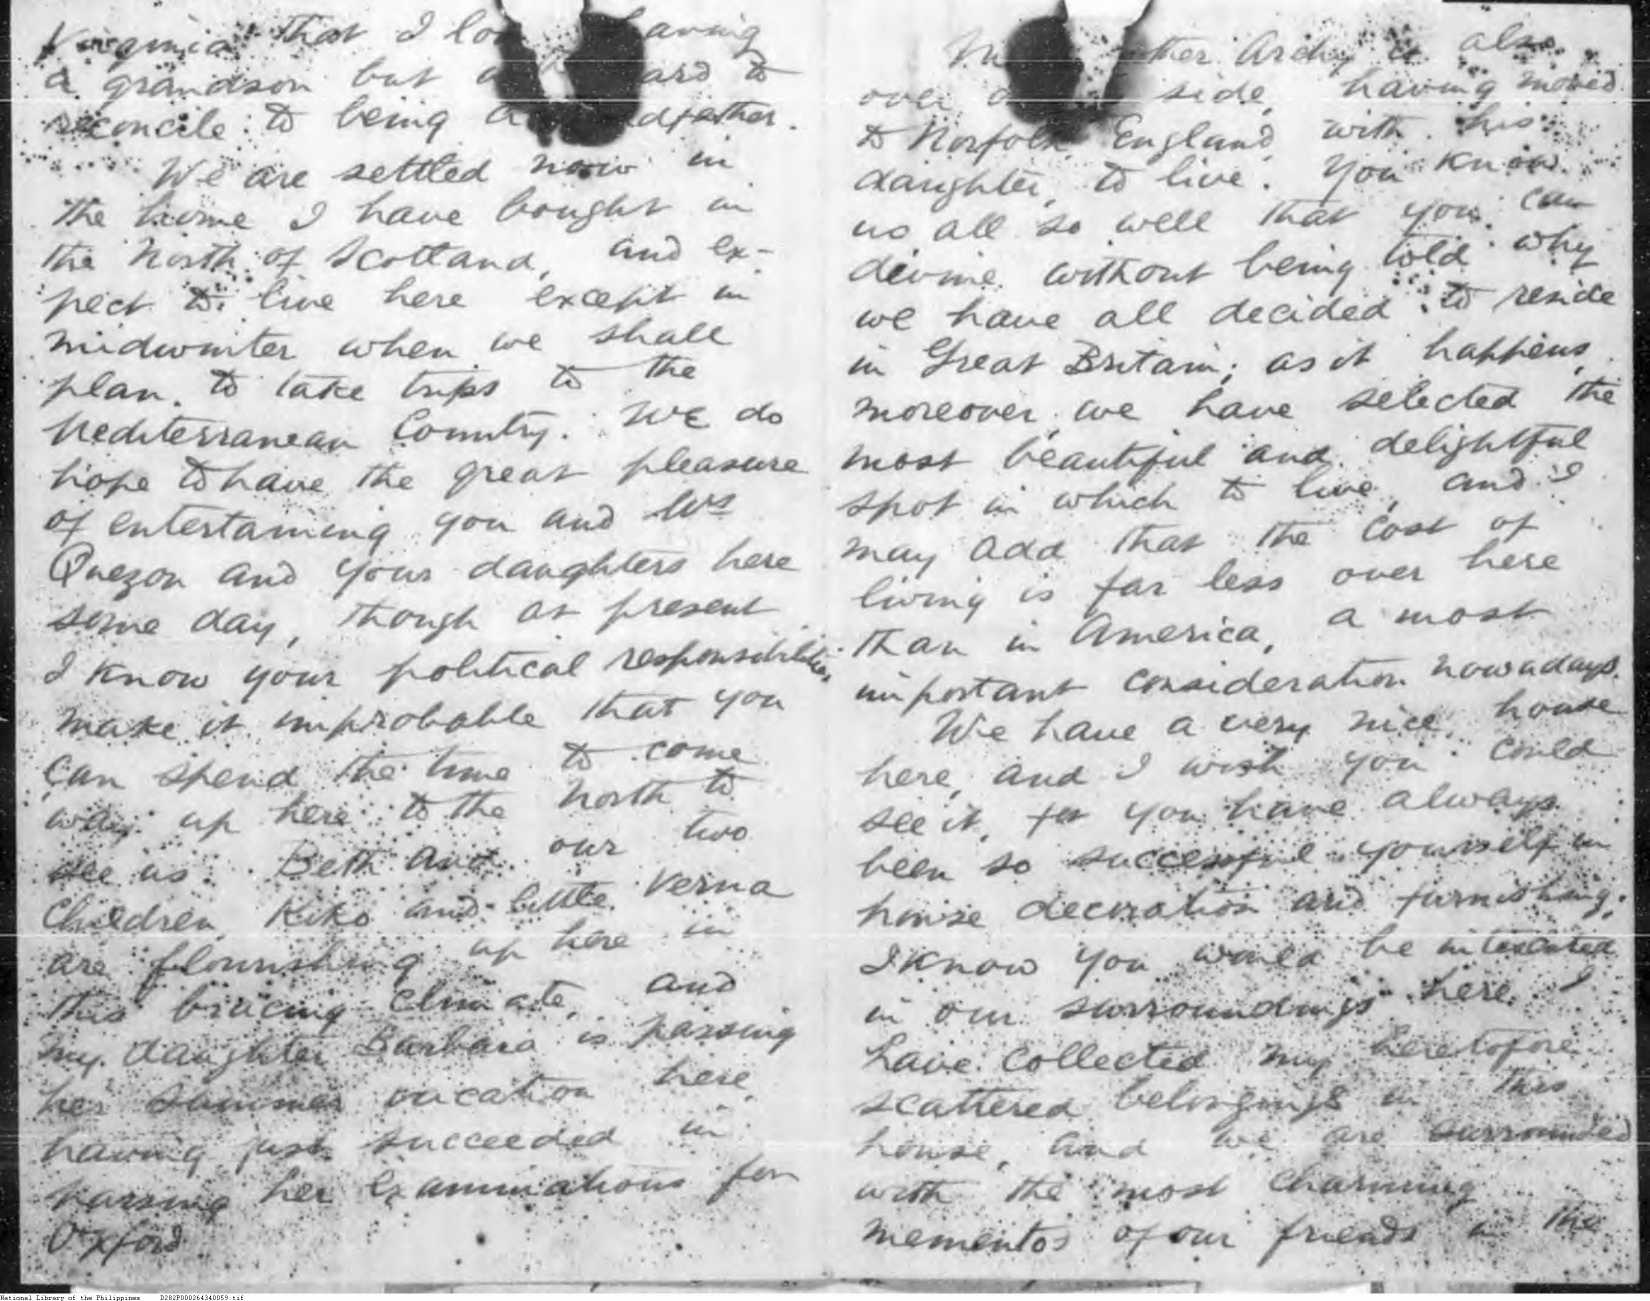 Virginia that I lo aving
a grandson but a ard to
reconcile to being a dfather.
We are settled now in
the home I have bought in
the North of Scotland, and ex-
pect to live here except in
midwinter when we shall
plan to take trips to the
Mediterranean Country. We do
hope to have the great pleasure
of entertaining you and Mrs
Quezon and your daughters here
some day, though at present
I know your political responsibilities
make it improbable that you
can spend the time to come
way up here to the North to
see us. Beth and our two
children Kiko and little Verna
are flourishing up here in
this bracing climate, and
my daughter Barbara is passing
her summer vacation here,
having just succeeded in
passing her examinations for
Oxford
ther Archy is also
over side, having moved
to Norfolk, England, with his
daughter, to live. You know
us all so well that you can
divine without being told why
we have all decided to reside
in Great Britain; as it happens,
moreover, we have selected the
most beautiful and delightful
spot in which to live, and I
may add that the cost of
living is far less over here
than in America, a most
important consideration nowadays.
We have a very nice house
here, and I wish you could
see it, for you have always
been so successful yourself in
house decoration and furnishing;
I know you would be interested
in our surroundings here. I
have collected my heretofore
scattered belongings in this
house, and we are surrounded
with the most charming
mementos of our friends in the
National Library of the Philippines D282P000264340059.tif